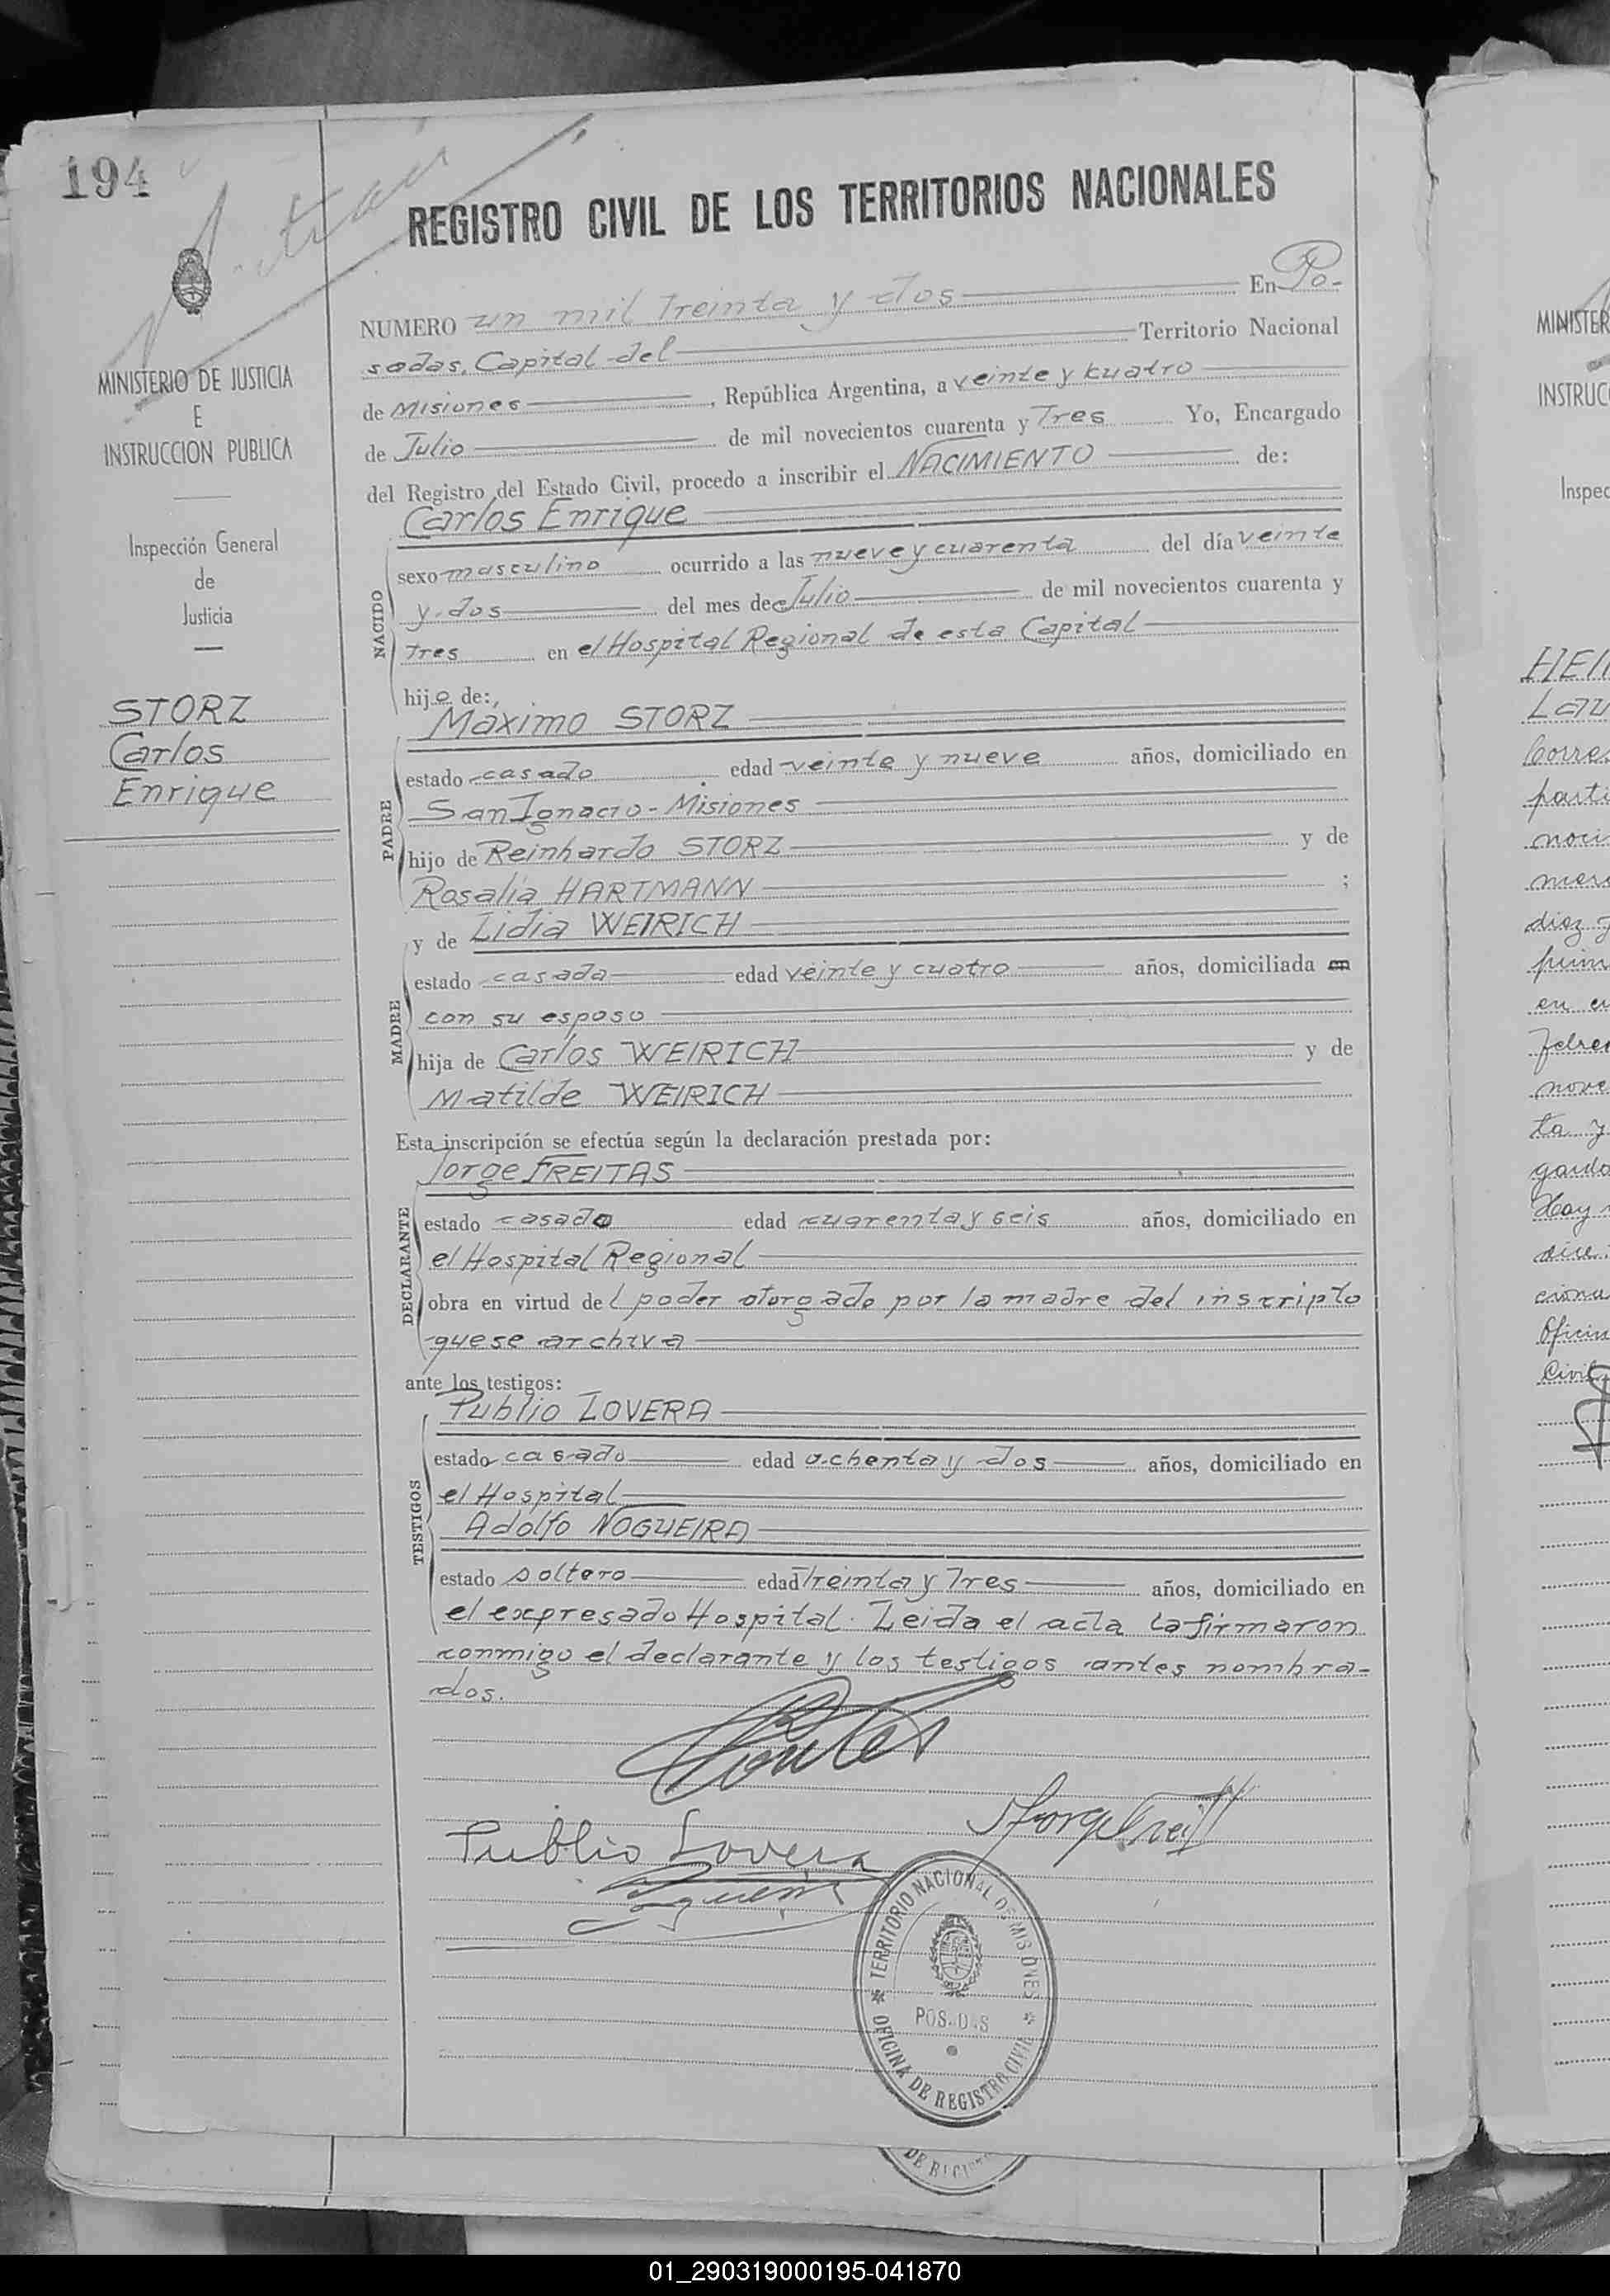 194
REGISTRO CIVIL DE LOS TERRITORIOS NACIONALES
MINISTERIO DE JUSTICIA
E
INSTRUCCION PUBLICA
Inspección General
de
Justicia
STORZ
Carlos
Enrique
NUMERO un mil treinta y dos En Po-
sadas, Capital del Territorio Nacional
de Misiones, República Argentina, a veinte y kuatro
de Julio de mil novecientos cuarenta y Tres Yo, Encargado
del Registro del Estado Civil, procedo a inscribir el NACIMIENTO de:
NACIDO
Carlos Enrique
sexo masculino ocurrido a las nueve y cuarenta del día veinte
y dos del mes de Julio de mil novecientos cuarenta y
Tres en el Hospital Regional de esta Capital
hijo de:
PADRE
Máximo STORZ
estado casado edad veinte y nueve años, domiciliado en
San Ignacio - Misiones
hijo de Reinhardo STORZ y de
Rosalía HARTMANN ;
MADRE
y de Lidia WEIRICH
estado casada edad veinte y cuatro años, domiciliada en
con su esposo
hija de Carlos WEIRICH y de
Matilde WEIRICH
Esta inscripción se efectúa según la declaración prestada por:
DECLARANTE
Jorge FREITAS
estado casado edad cuarenta y seis años, domiciliado en
el Hospital Regional
obra en virtud del poder otorgado por la madre del inscripto
que se archiva
ante los testigos:
TESTIGOS
Publio LOVERA
estado casado edad ochenta y dos años, domiciliado en
el Hospital
Adolfo NOGUEIRA
estado soltero edad Treinta y Tres años, domiciliado en
el expresado Hospital. Leida el acta la firmaron
conmigo el declarante y los testigos antes nombra-
dos.
Publio Lovera
TERRITORIO NACIONAL DE MISIONES
POSADAS
OFICINA DE REGISTRO CIVIL
MINISTER
INSTRUC
Inspec
01_290319000195-041870